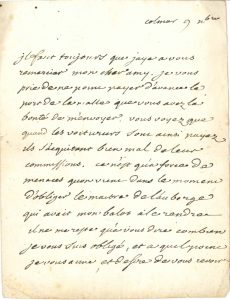 colmar 9 nbre
jl faut toujours que jaye a vous
remercier mon cher amy, je vous
prie de ne point payer davance le
port de la malle que vous avez la
bonté de m'envoyer. vous voyez que
quand les voituriers sont ainsi payez
ils s'acquitent bien mal de leur
commissions, ce n'est qu'a force de
menaces qu'on vient dans le moment
d'obliger le maitre de l'auberge
qui avait mon balot a le rendre
il ne me reste qu'a vous dire combien
je vous suis obligé, et a quel point
je vous aime et desire de vous revoir